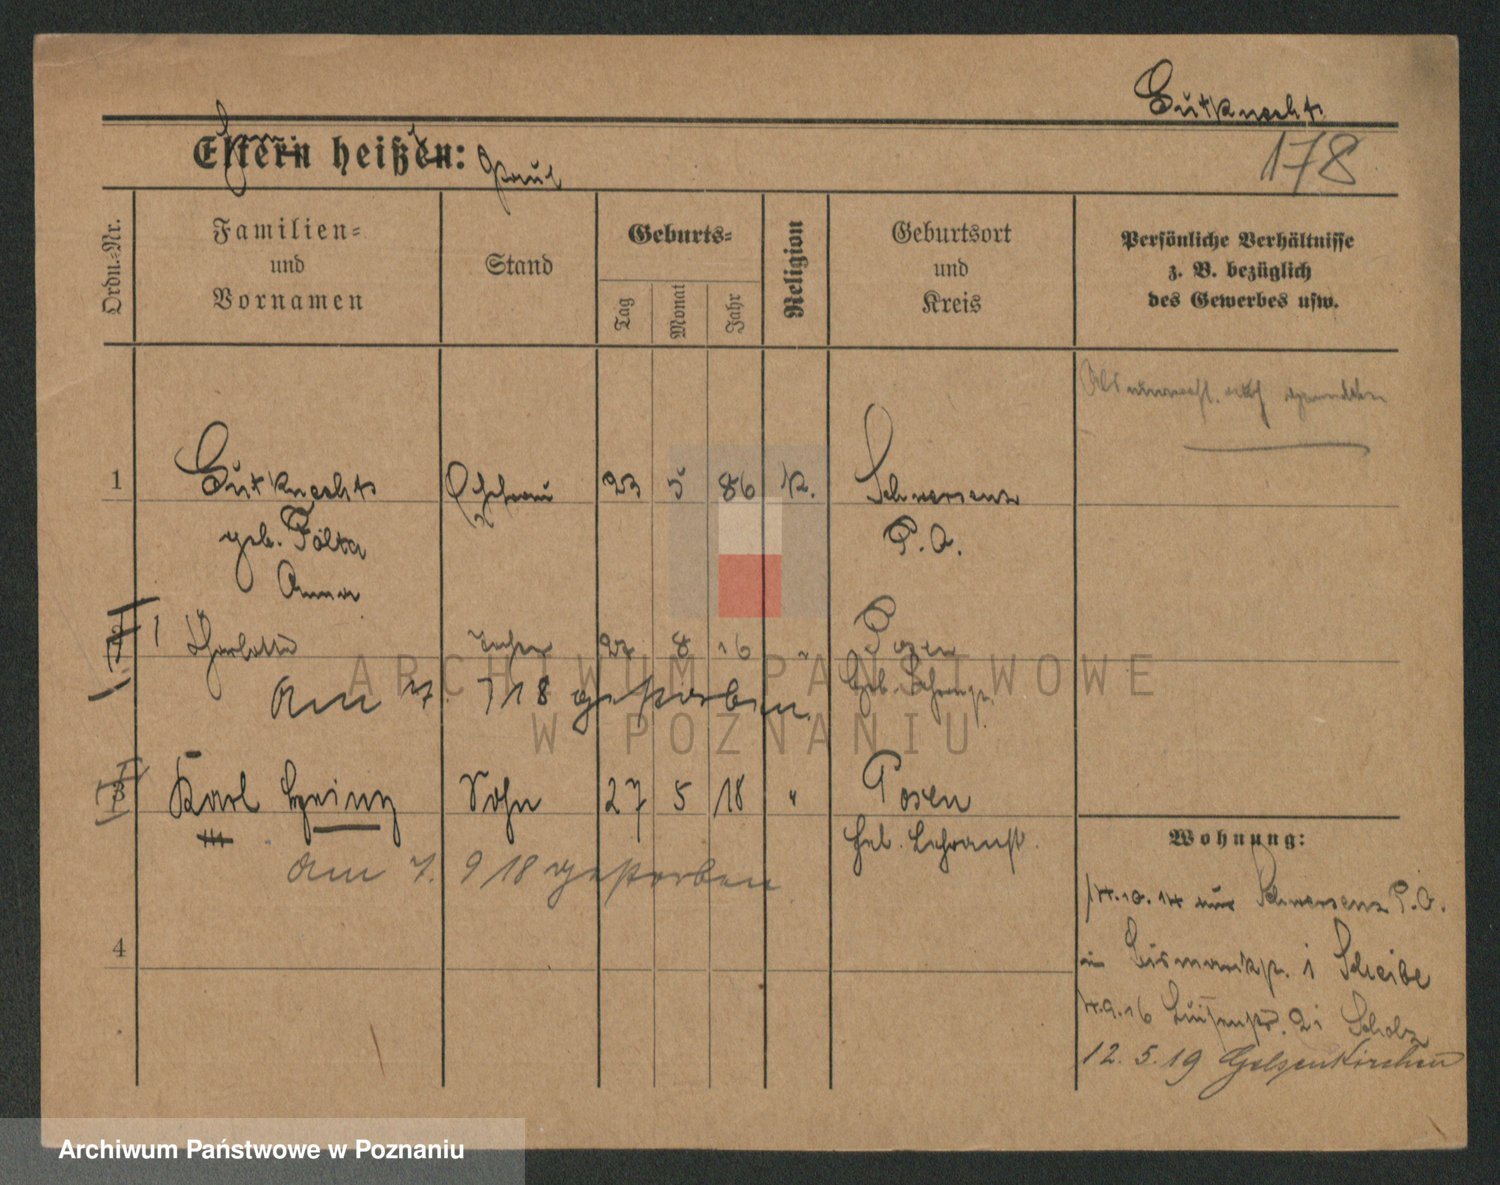 Gutknecht
178
Eltern heißen:
Paul
Ordn.-Nr.
Familien- und Vornamen
Stand
Geburts-
Tag
Monat
Jahr
Religion
Geburtsort und Kreis
Persönliche Verhältnisse
z. B. bezüglich
des Gewerbes usw.
1 Gutknecht Ehefrau 23 5 86 K. Schwersenz
geb. Folta P. O.
Anna
Charlotte 8 16 " Posen
Am 7 18 gestorben.
3 Karl Heinz Sohn 27 5 18 " Posen
Heb. Lehranst.
Am 7. 9 18 gestorben
4
Wohnung:
10. 14 aus Schwersenz P. O.
Bismarckstr. 1 Scheibe
9. 16 Luisenstr. 21 Scholz
12. 5. 19 Gelsenkirchen
ARCHIWUM PAŃSTWOWE
W POZNANIU
Archiwum Państwowe w Poznaniu